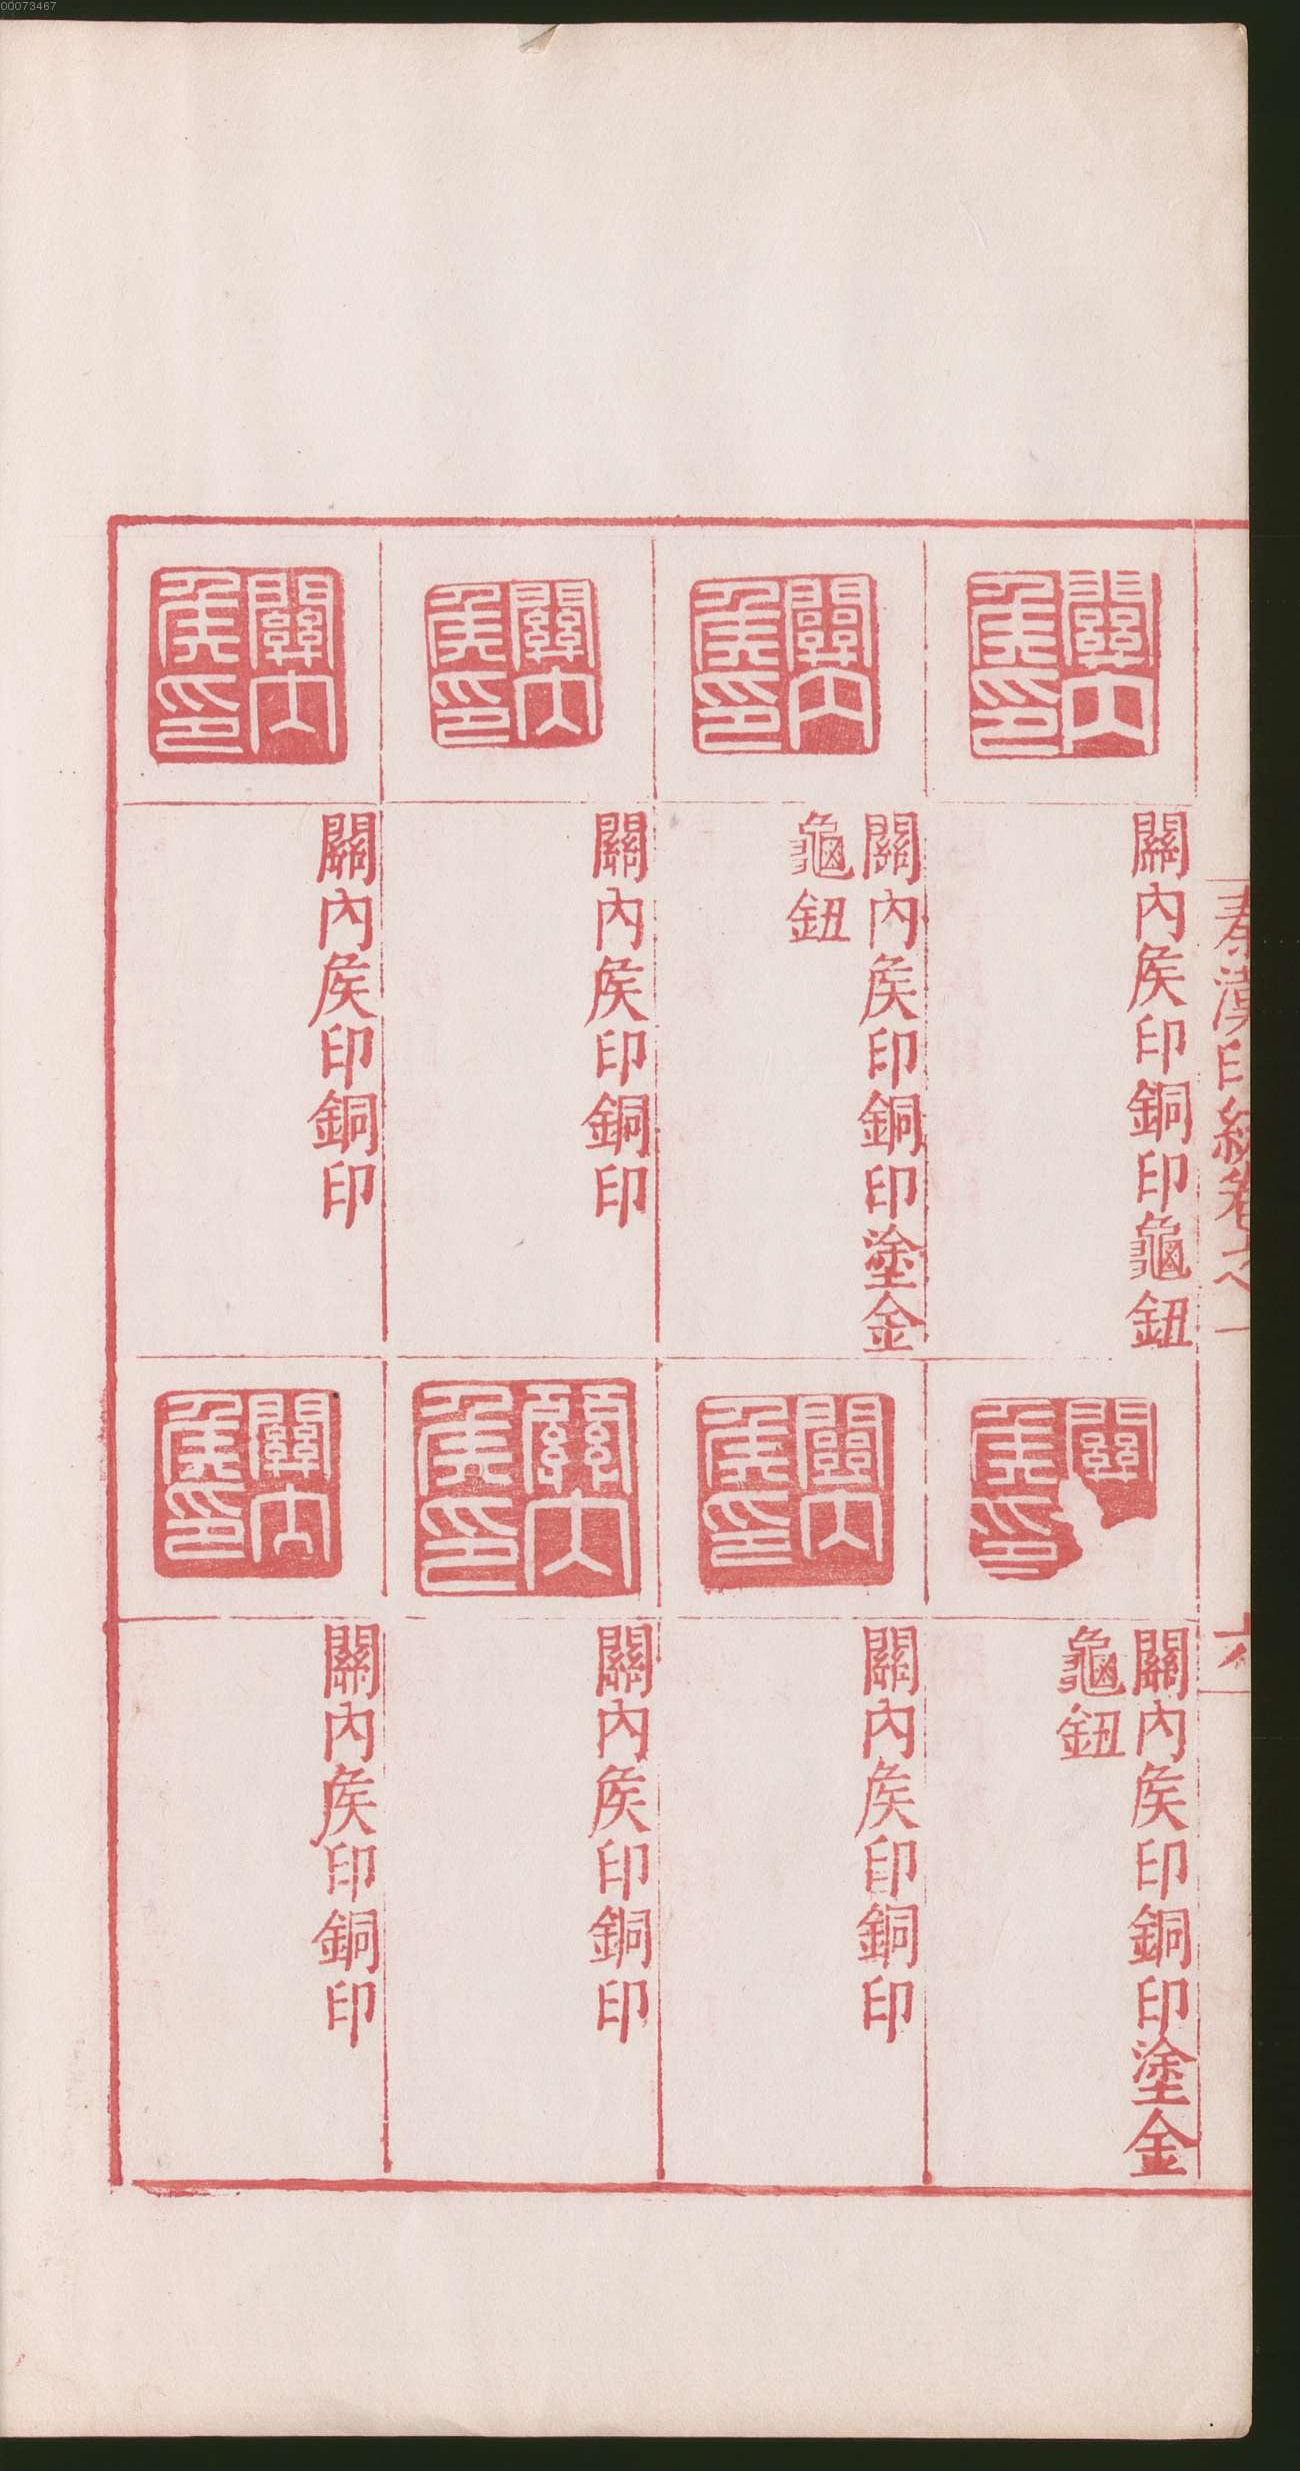 00073467
秦漢印統卷之一
六
關內
矦印
關內矦印銅印龜鈕
關內
矦印
關內矦印銅印塗金
龜鈕
關內
矦印
關內矦印銅印
關內
矦印
關內矦印銅印
關
矦印
關內矦印銅印塗金
龜鈕
關內
矦印
關內矦印銅印
關內
矦印
關內矦印銅印
關內
矦印
關內矦印銅印